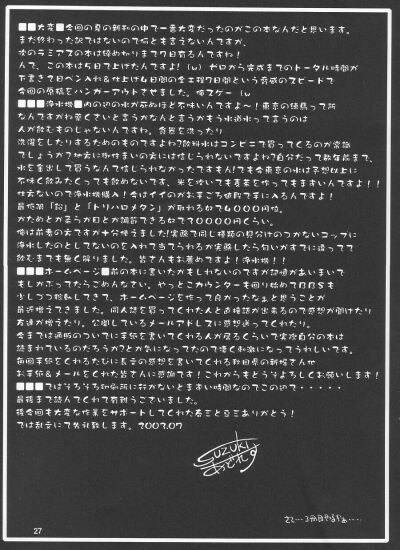 ■■大変■今回の夏の新刊の中で一番大変だったのがこの本なんだと思います。
まだ終わった訳ではないので何とも言えないんですが、
次のラミアスの本は締め切りまで7日有るんですね!
んで、この本は5日で上げたんですよ!(w) ゼロから完成までのトータル時間が
下書き2日ペン入れ&仕上げ4日間の全工程7日間という脅威のスピードで
今回の原稿をハンガーアウトさせました。俺スゲー(w
■■■浄水機■内の辺の水が茶めほど不味いんですよ〜!東京の練馬って所
なんですがね臭くさいと言うかなんと言うかもう水道水って言うのは
人が飲むものじゃないんですね。食器を洗ったり
洗濯をしたりするためのものですよね?飲料水はコンビニで買ってくるのが常識
でしょうか?地方に御住まいの方には信じられないですよね?自分だって数年前まで、
水を金出して買うなんて信じられなかったですもん!でも今東京の水は予想以上に
不味く飲みたくっても飲めないです。米を炊いても麦茶を作ってもまずいんですよ!!
仕方ないので浄水機購入!今はイイのがお手ごろ値段で手に入るんですよ!
最低限「鉛」と「トリハロメタン」が取れる奴で4000円位。
かためとか柔らか目とか調節できる奴で10000円くらい。
俺は前者の方ですが十分使えました!実際で同じ種類の見分けのつかないコップに
浄水したのとしてないのを入れて当てられるか実験したら匂いがすでに違ってて
飲むまでも無く解りました。皆さんもお薦めですよ!浄水機!!
■■■ホームページ■前の本に書いたかもしれないのですが記憶があいまいで
もしかぶってたらごめんなさい。やっとこカウンターも回り始めてBBSも
少しづつ稼動してきて、ホームページを作って良かったなぁと思うことが
最近増えてきました。同人誌を買ってくれた人と直接話が出来るので感想が聞けたり
友達が増えたり。公開しているメールアドレスに感想送ってくれたり。
今までは通販のついでに手紙を書いてくれる人が居るくらいで実際自分の本は
読まれているのだろうか?とか気になってたので凄く刺激になってうれしいです。
毎回手紙をくれるたびに長文の感想を書いてくれる秋田県の新堀さんや
お手紙&メールをくれた皆さんに感謝です!これからもどうぞよろしくお願いします!
■■■ではそろそろ印刷所に行かないとまずい時間なのでこの辺で・・・・・
最後まで読んでくれて有難うございました。
後今回も大変な作業をサポートしてくれた春三と亞三ありがとう!
では乱文にて失礼致します。2003.07
SUZUKI
27